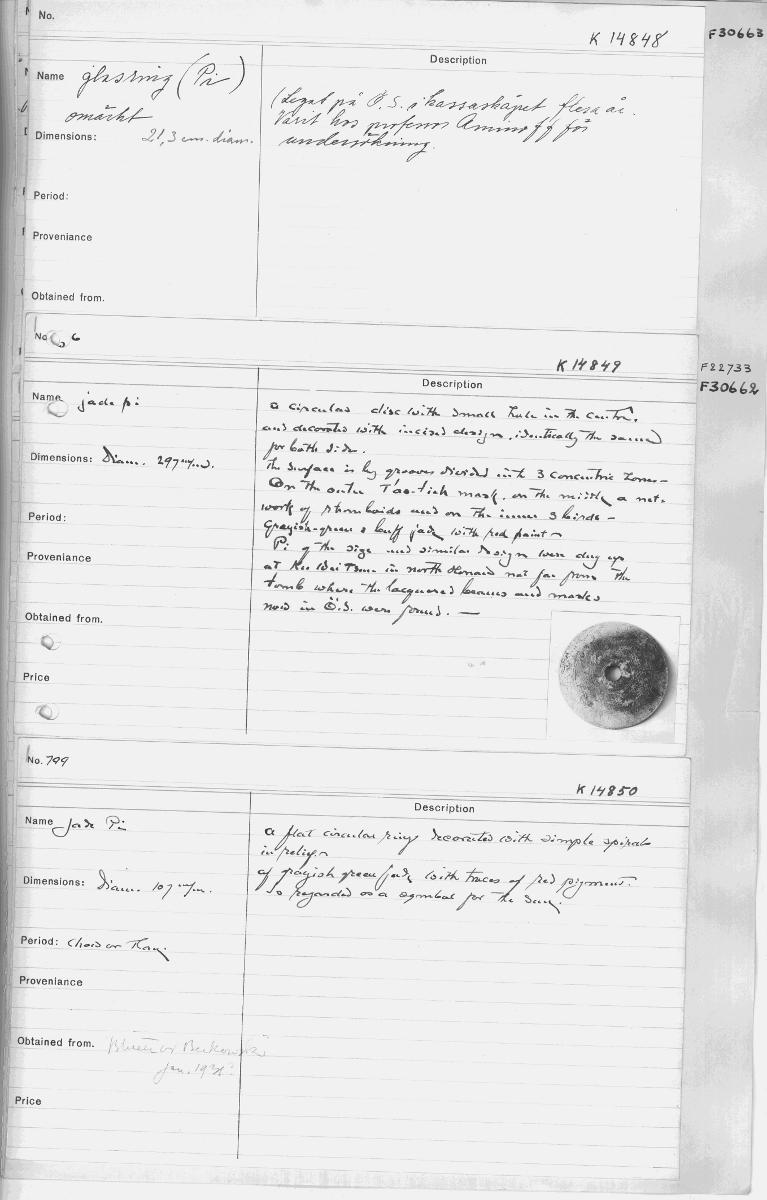 No.
K 14848
F30663
Description
Name glasring (Pi)
omärkt
Dimensions: 21,3 cm. diam.
(Legat på Ö.S. i kassaskåpet flera år.
Varit hos professor Aminoff för
undersökning.
Period:
Proveniance
Obtained from.
No 6
K 14849
F22733
F30662
Description
Name jade pi
Dimensions: Diam. 297 m/m.
a circular disc with small hole in the centre,
and decorated with incised design, identically the same
for both sides.
The surface is by grooves divided into 3 concentric zones —
On the outer T'ao-tieh mask, on the middle a net-
work of rhomboids and on the inner 3 birds —
Grayish-green & buff jade with red paint
Pi of the size and similar design were dug up
at in north Honan not far from the
tomb where the lacquered beams and masks
now in Ö.S. were found. —
Period:
Proveniance
Obtained from.
Price
No. 799
K 14850
Description
Name Jade Pi
Dimensions: Diam. 107 m/m.
a flat circular ring decorated with simple spirals
in relief
of grayish green jade with traces of red pigment.
Is regarded as a symbol for the Sun.
Period: Chou or Han.
Proveniance
Obtained from.
Jan. 19
Price